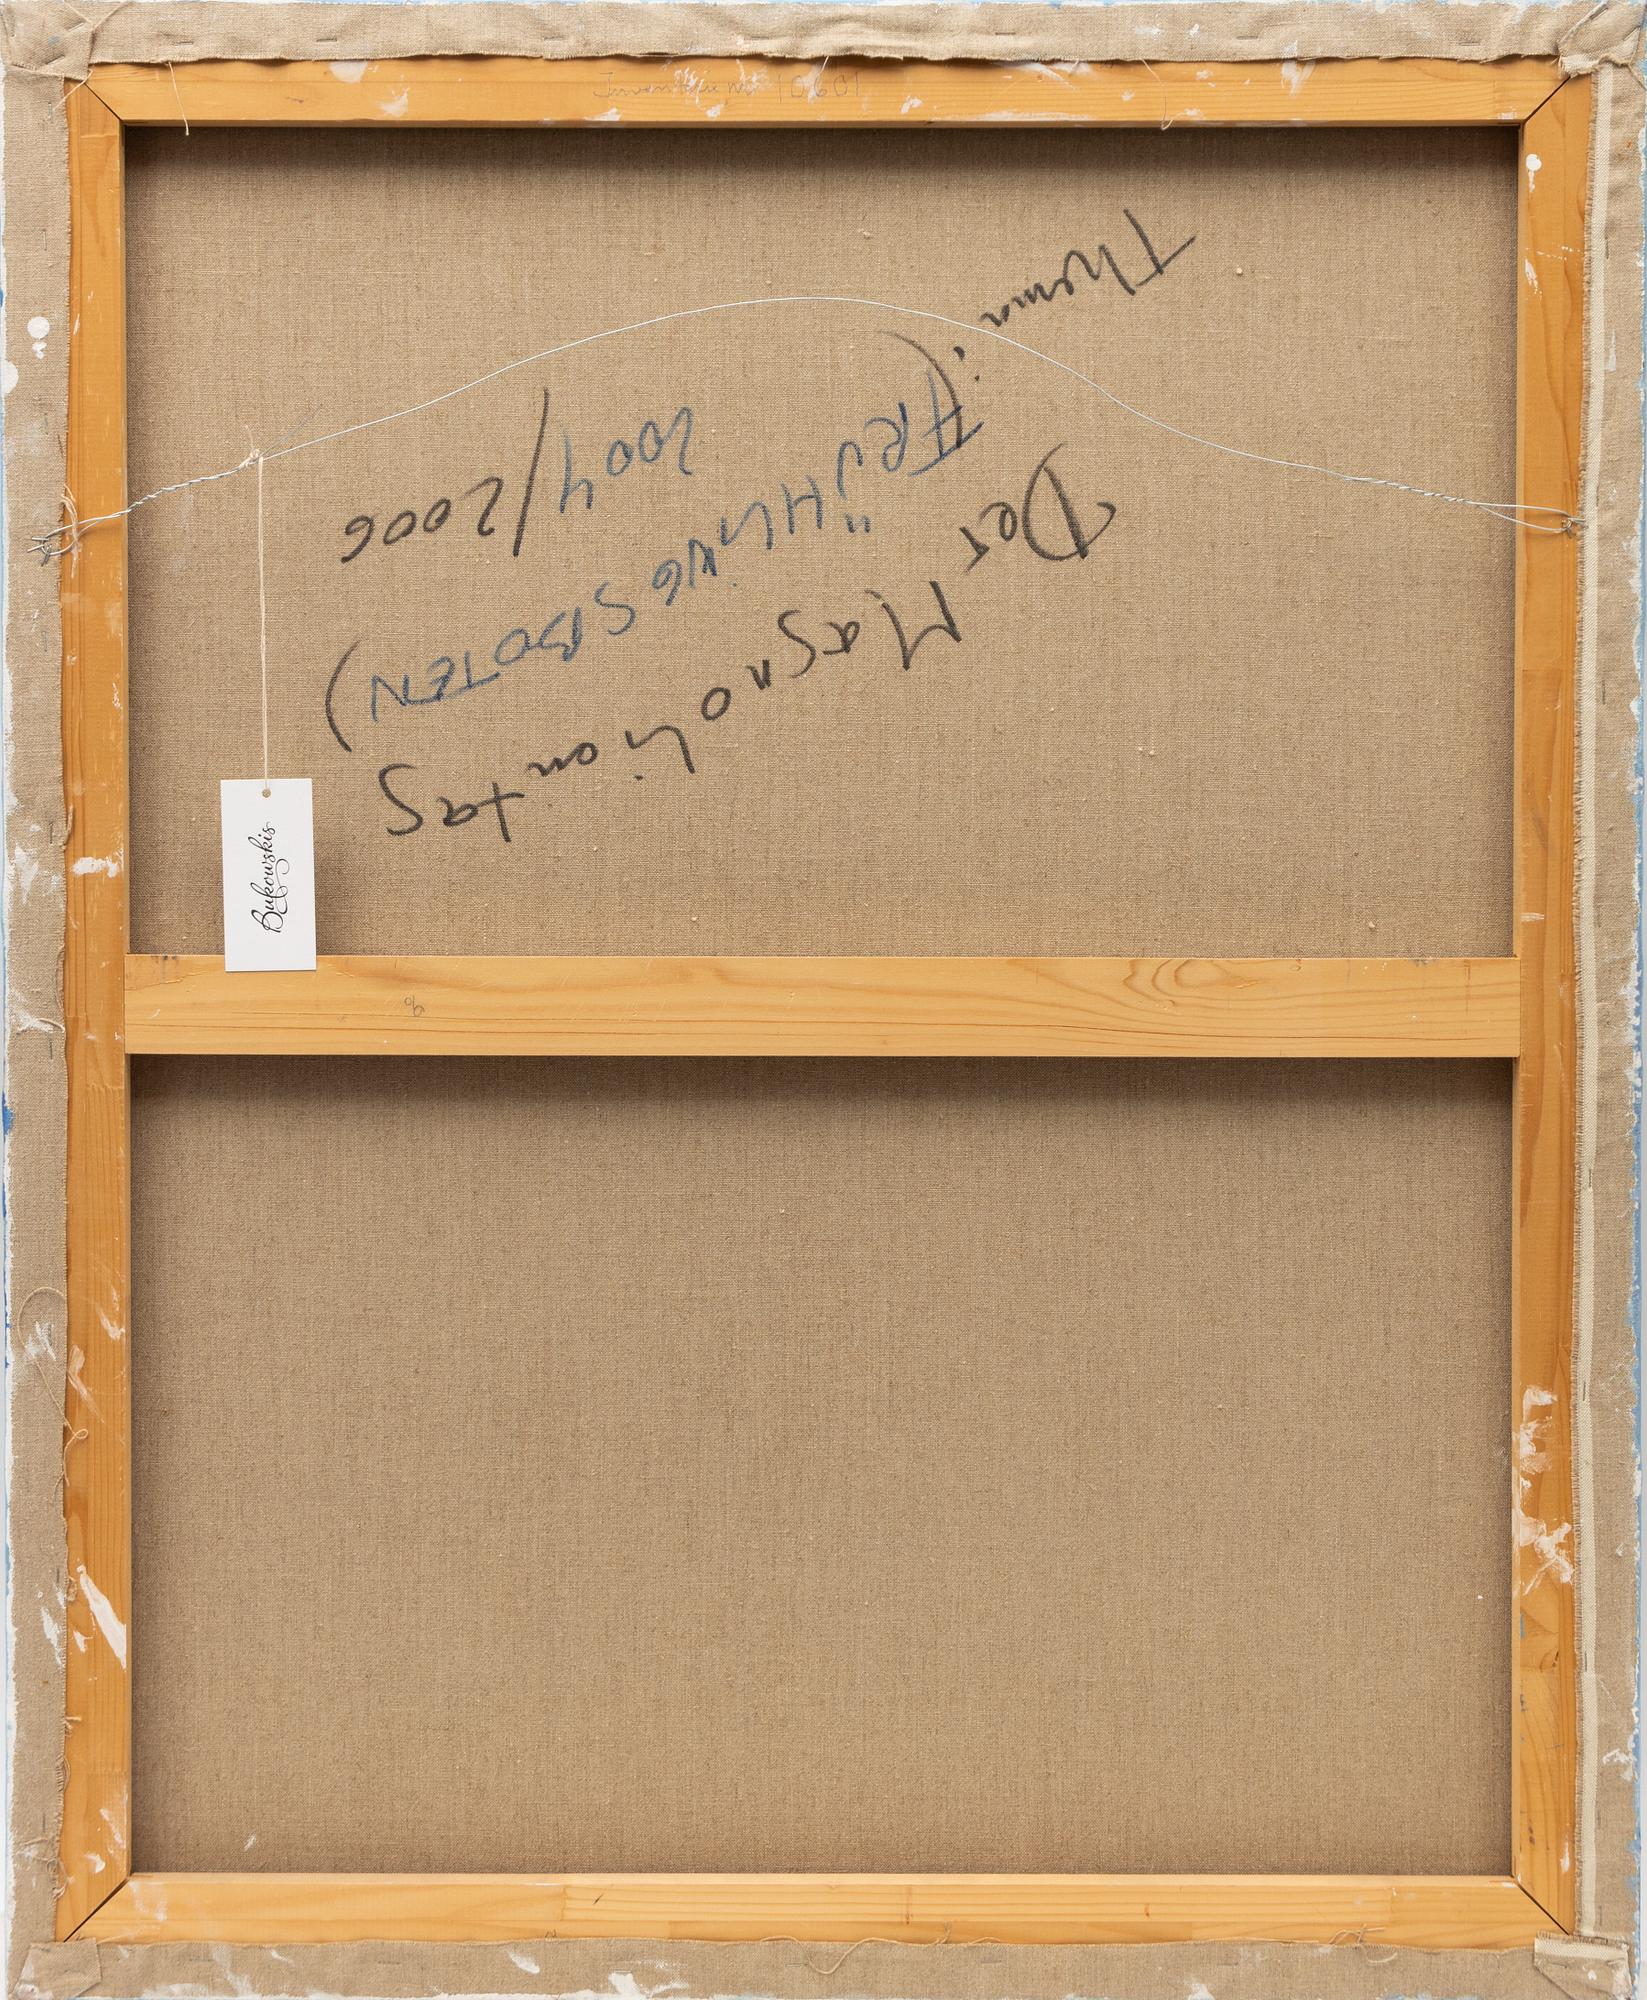 Inventarie nr 10601
Thema:
Der Magnolientag
(FRÜHLINGSBOTEN)
2004/2006
Bukowskis